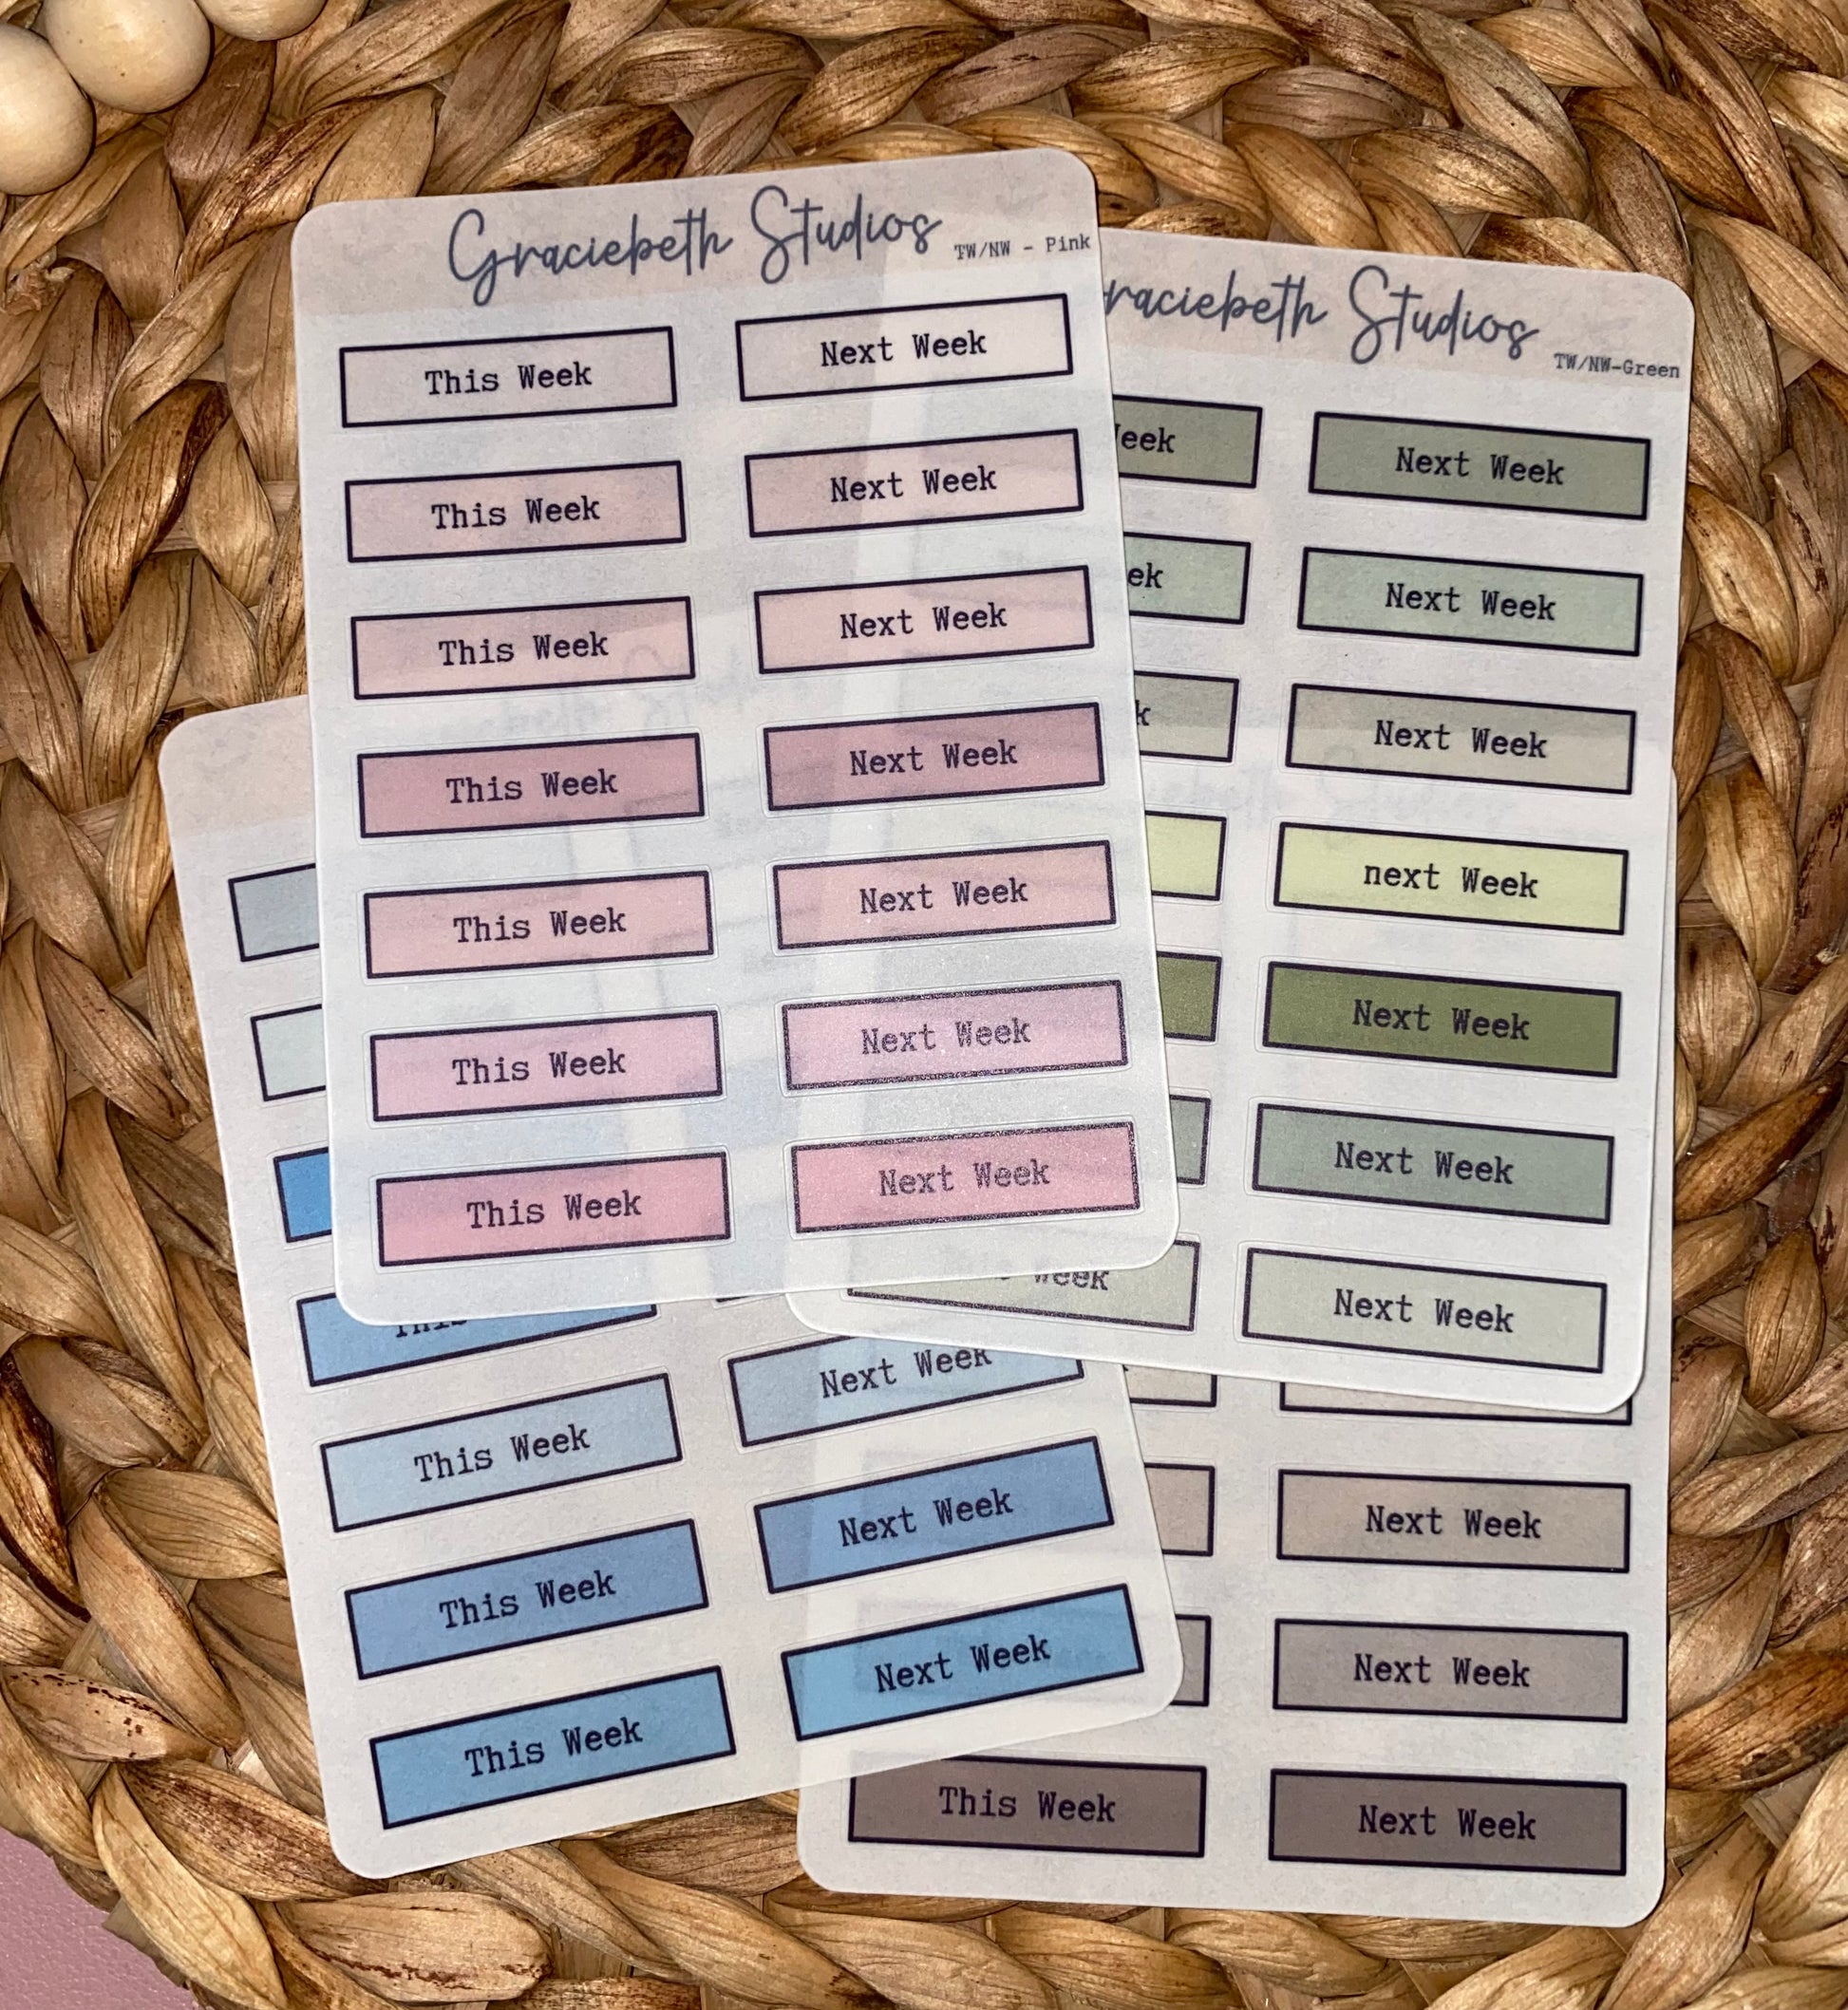 Graciebeth Studios
TW/NW - Pink
This Week
Next Week
This Week
Next Week
This Week
Next Week
This Week
Next Week
This Week
Next Week
This Week
Next Week
This Week
Next Week
raciebeth Studios
TW/NW-Green
eek
Next Week
ek
Next Week
k
Next Week
next Week
Next Week
Next Week
Week
Next Week
This
Next Week
This Week
Next Week
This Week
Next Week
This Week
Next Week
Next Week
This Week
Next Week